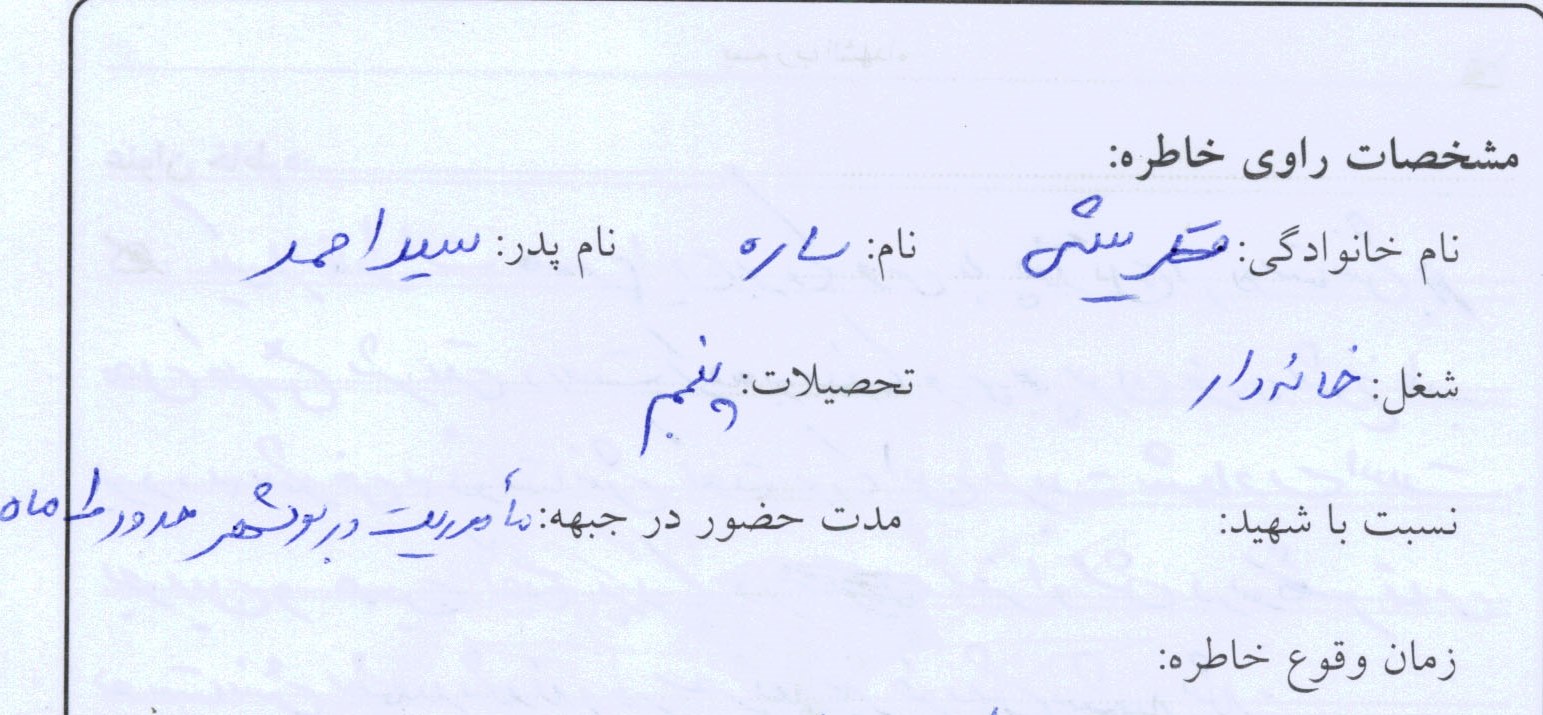 مشخصات راوی خاطره:
نام خانوادگی: قریشی نام: ساره نام پدر: سید احمد
شغل: خانه دار تحصیلات: پنجم
نسبت با شهید: مدت حضور در جبهه: مأموریت در بوشهر حدود ماه
زمان وقوع خاطره: